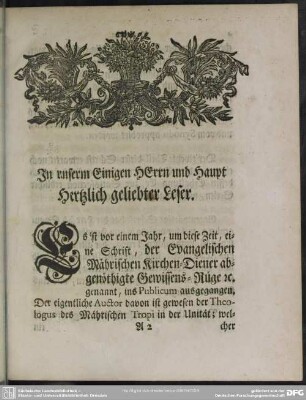 In unserm Einigen HErrn und Haupt
Hertzlich geliebter Leser.
Es ist vor einem Jahr, um diese Zeit, ei-
ne Schrift, der Evangelischen
Mährischen Kirchen-Diener ab-
genöthigte Gewissens-Rüge ꝛc.
genannt, ins Publicum ausgegangen.
Der eigentliche Auctor davon ist gewesen der Theo-
logus des Mährischen Tropi in der Unität; wel-
A 2 cher